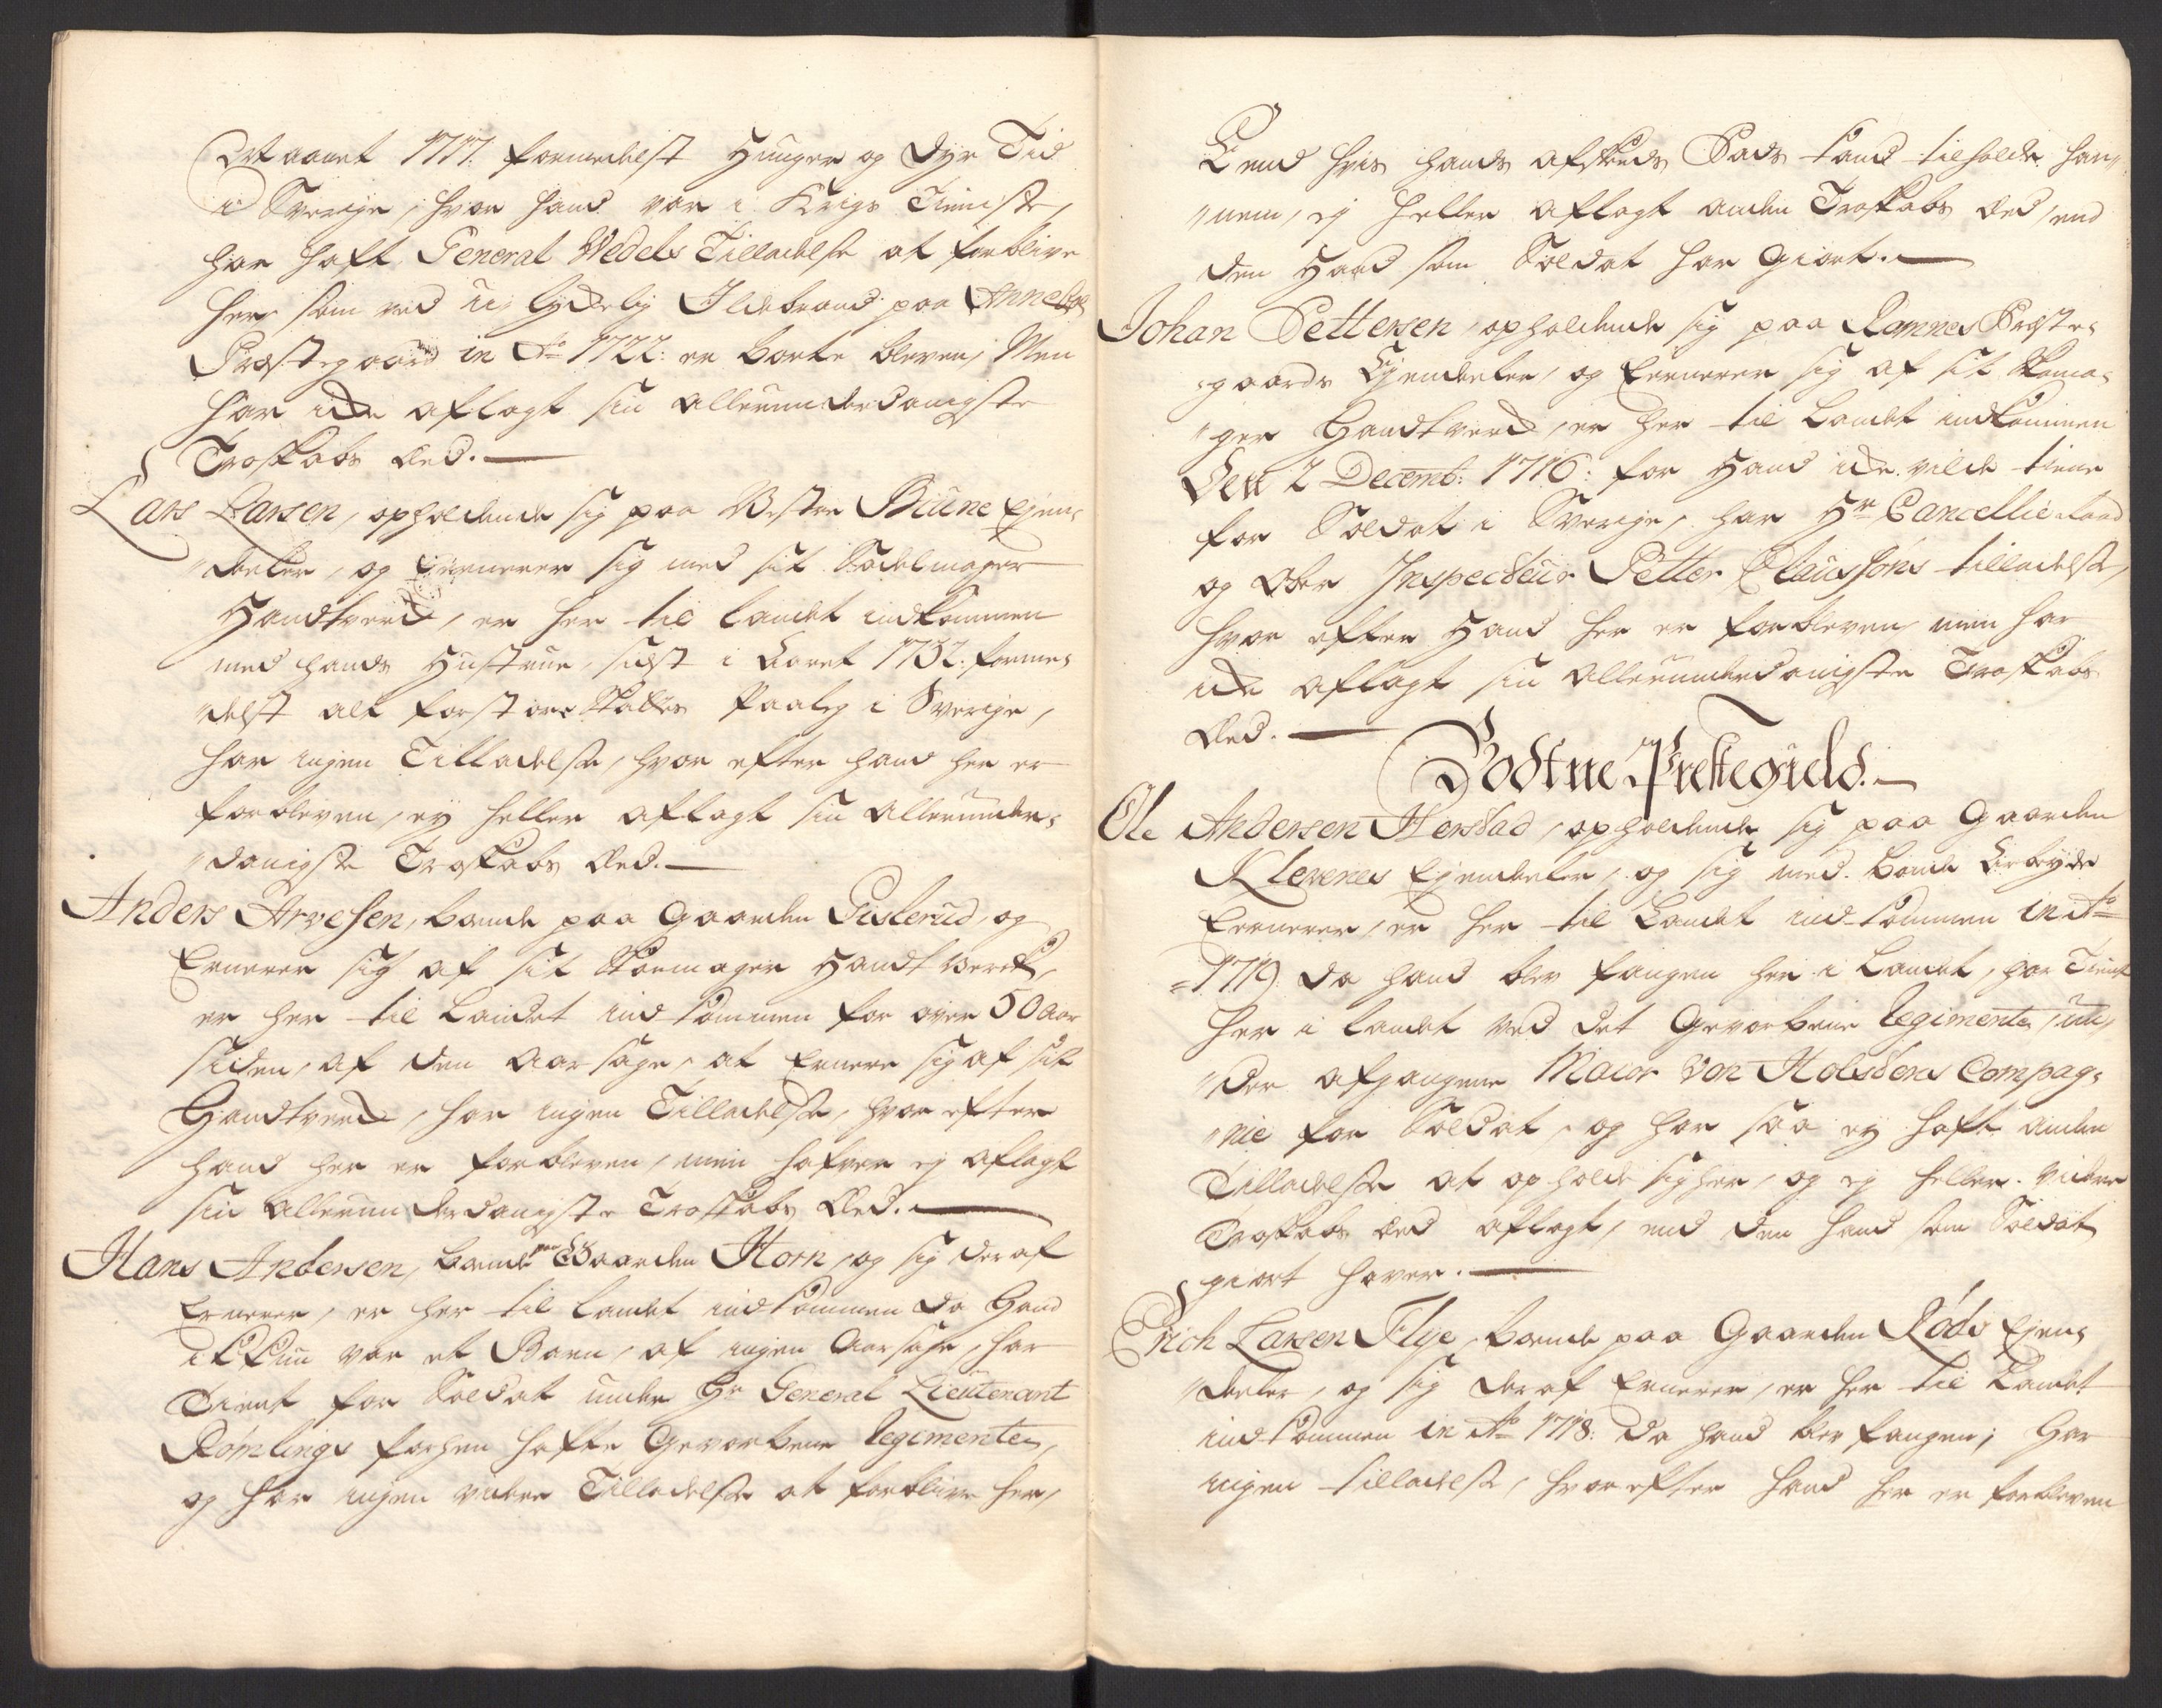 Det aaret 1717. formedelst Hunger og dyr Tid
i Sverige, hvor hand var i Krigs Tieniste,
har haft General Wedels Tilladelse at forblive
her, som ved ulykkelig Ildebrand paa Annebøe
Præstegaard in Ao 1722: er borte bleven, Men
har icke aflagt sin allerunderdanigste
Troskabs Eed.
Lars Larsen, opholdende sig paa Westre Biune Ejen-
deeler, og Ernerer sig med sit Sadelmager
Handtverck, er her til landet indkommen
med hands Hustrue, sidst i Aaret 1732: forme-
delst alt for store Skatters Paaleg i Sverige,
har ingen Tilladelse, hvor efter hand her er
forbleven, ey heller aflagt sin allerunder-
danigste Troskabs Eed.
Anders Arvesen, boende paa Gaarden Gislerud, og
Ernerer sig af sit Skoemager Handtverck,
er her til Landet ind kommen for over 50 Aar
siden, af den Aarsage, at Ernere sig af sit
Handtverck, har ingen Tilladelse, hvor efter
hand her er forbleven, men hafver ej aflagt
sin allerunderdanigste Troskabs Eed.
Hans Andersen, boende paa Gaarden Horn, og sig deraf
Ernerer, er her til landet indkommen da Hand
ickun var et Barn, af ingen Aarsage, har
Tient for Soldat under Hr General Lieutenant
Rømlings forhen hafte Gevorbene Regimente,
og har ingen videre Tilladelse at forblive her,
End hvis hands afskeeds Pads kand tilholde han-
nem, ej heller aflagt anden Troskabs Eed, end
den Hand som Soldat har giort.
Johan Pettersen, opholdende sig paa Ramnes Præste-
gaards Ejendeeler, og Ernerer sig af sit Skoma-
ger Handtverck, er her til Landet indkommen
Den 2 Decemb: 1716: for Hand icke vilde tiene
for Soldat i Sverige, har Hr Cancellie Raad
og Ober Inspecteur Petter Claussøns tilladelse,
hvor efter Hand her er forbleven, men har
icke aflagt sin Allerunderdanigste Troskabs
Eed.
Bodtne Prestegield.
Ole Andersen Herstad, opholdende sig paa Gaarden
Klevenes Ejendeeler, og sig med bonde Arbeyde
Ernerer, er her til Landet ind kommen in Ao
1719. da hand blev fangen her i Landet, har Tient
her i landet ved det Gevorbene Regimente, un-
der afgangene Maior von Holstens Compag-
nie for Soldat, og har saa ey haft anden
Tilladelse at opholde sig her, og ej heller videre
Troskabs Eed aflagt, end den hand som Soldat
giort haver.
Erich Larsen Flye, boende paa Gaarden Røds Ejen-
deeler, og sig deraf Ernerer, er her til Landet
indkommen in Ao 1718: da hand blev fangen; Har
ingen tilladelse, hvor efter hand her er forbleven